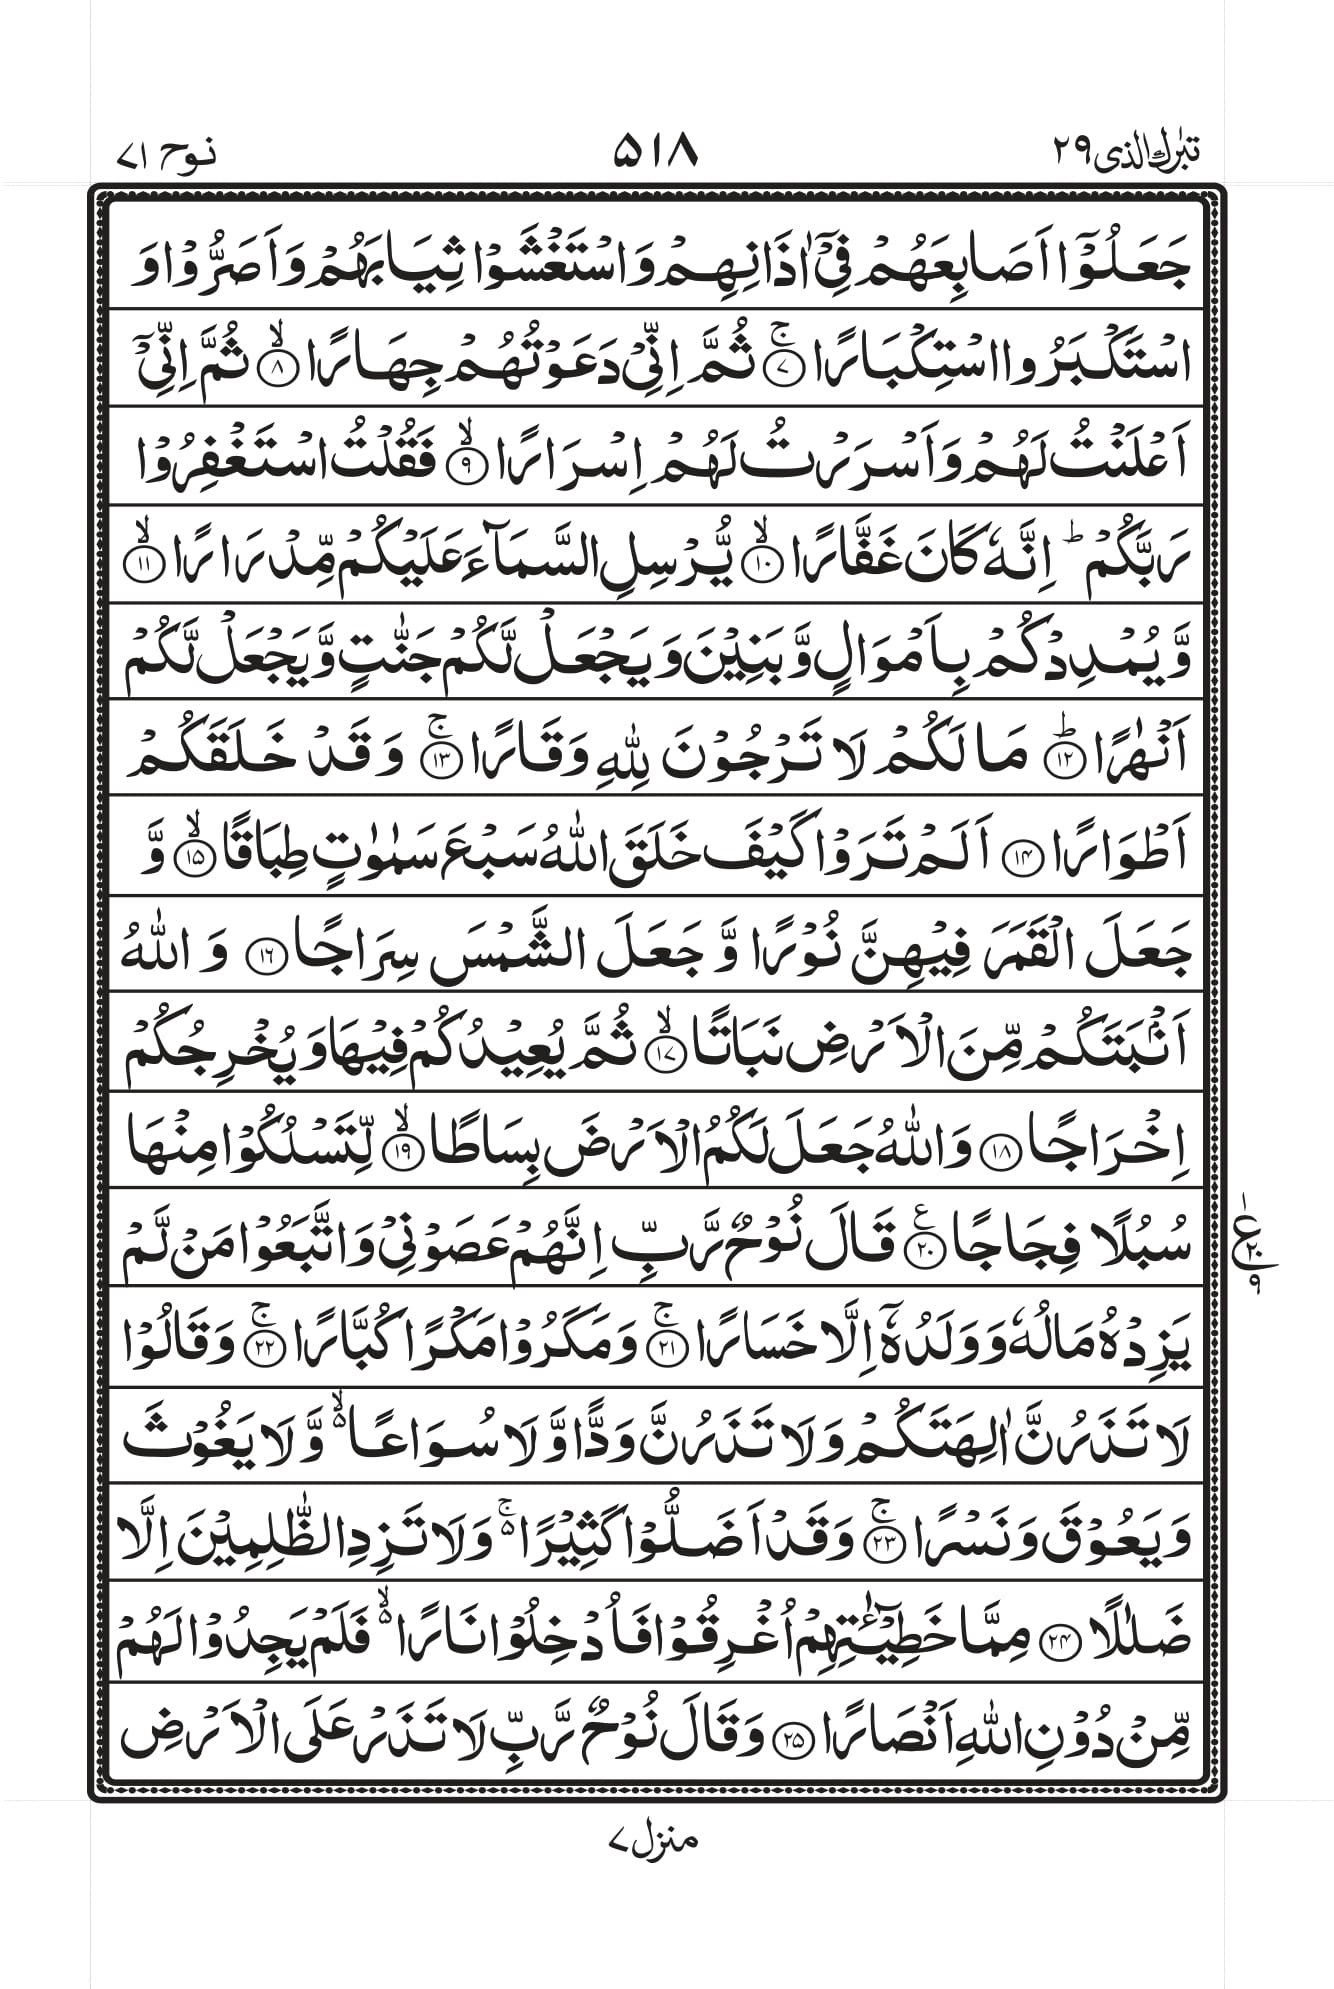 تبٰرك الذی ٢٩
٥١٨
نوح ٧١
جَعَلُوْۤا اَصَابِعَهُمْ فِیْۤ اٰذَانِهِمْ وَاسْتَغْشَوْا ثِیَابَهُمْ وَاَصَرُّوْا وَ
اسْتَكْبَرُوا اسْتِكْبَارًا ۚ‏﴿٧﴾ ثُمَّ اِنِّیْ دَعَوْتُهُمْ جِهَارًا ۙ‏﴿٨﴾ ثُمَّ اِنِّیْۤ
اَعْلَنْتُ لَهُمْ وَاَسْرَرْتُ لَهُمْ اِسْرَارًا ۙ‏﴿٩﴾ فَقُلْتُ اسْتَغْفِرُوْا
رَبَّكُمْ ؕ اِنَّهٗ كَانَ غَفَّارًا ۙ‏﴿١٠﴾ یُّرْسِلِ السَّمَآءَ عَلَیْكُمْ مِّدْرَارًا ۙ‏﴿١١﴾
وَّیُمْدِدْكُمْ بِاَمْوَالٍ وَّبَنِیْنَ وَیَجْعَلْ لَّكُمْ جَنّٰتٍ وَّیَجْعَلْ لَّكُمْ
اَنْهٰرًا ؕ‏﴿١٢﴾ مَا لَكُمْ لَا تَرْجُوْنَ لِلّٰهِ وَقَارًا ۚ‏﴿١٣﴾ وَقَدْ خَلَقَكُمْ
اَطْوَارًا ﴿١٤﴾ اَلَمْ تَرَوْا كَیْفَ خَلَقَ اللّٰهُ سَبْعَ سَمٰوٰتٍ طِبَاقًا ۙ‏﴿١٥﴾ وَّ
جَعَلَ الْقَمَرَ فِیْهِنَّ نُوْرًا وَّجَعَلَ الشَّمْسَ سِرَاجًا ﴿١٦﴾ وَاللّٰهُ
اَنْۢبَتَكُمْ مِّنَ الْاَرْضِ نَبَاتًا ۙ‏﴿١٧﴾ ثُمَّ یُعِیْدُكُمْ فِیْهَا وَیُخْرِجُكُمْ
اِخْرَاجًا ﴿١٨﴾ وَاللّٰهُ جَعَلَ لَكُمُ الْاَرْضَ بِسَاطًا ۙ‏﴿١٩﴾ لِّتَسْلُكُوْا مِنْهَا
سُبُلًا فِجَاجًا ﴿٢٠﴾ع قَالَ نُوْحٌ رَّبِّ اِنَّهُمْ عَصَوْنِیْ وَاتَّبَعُوْا مَنْ لَّمْ
ع ١ ٢٠ ٩
یَزِدْهُ مَالُهٗ وَوَلَدُهٗۤ اِلَّا خَسَارًا ۚ‏﴿٢١﴾ وَمَكَرُوْا مَكْرًا كُبَّارًا ۚ‏﴿٢٢﴾ وَقَالُوْا
لَا تَذَرُنَّ اٰلِهَتَكُمْ وَلَا تَذَرُنَّ وَدًّا وَّلَا سُوَاعًا ۙ۬ وَّلَا یَغُوْثَ
وَیَعُوْقَ وَنَسْرًا ۚ‏﴿٢٣﴾ وَقَدْ اَضَلُّوْا كَثِیْرًا ۚ۬ وَلَا تَزِدِ الظّٰلِمِیْنَ اِلَّا
ضَلٰلًا ﴿٢٤﴾ مِمَّا خَطِیْٓـٰٔتِهِمْ اُغْرِقُوْا فَاُدْخِلُوْا نَارًا ۙ۬ فَلَمْ یَجِدُوْا لَهُمْ
مِّنْ دُوْنِ اللّٰهِ اَنْصَارًا ﴿٢٥﴾ وَقَالَ نُوْحٌ رَّبِّ لَا تَذَرْ عَلَی الْاَرْضِ
منزل ٧